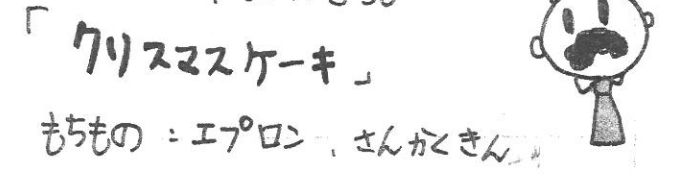 「クリスマスケーキ」
もちもの：エプロン、さんかくきん